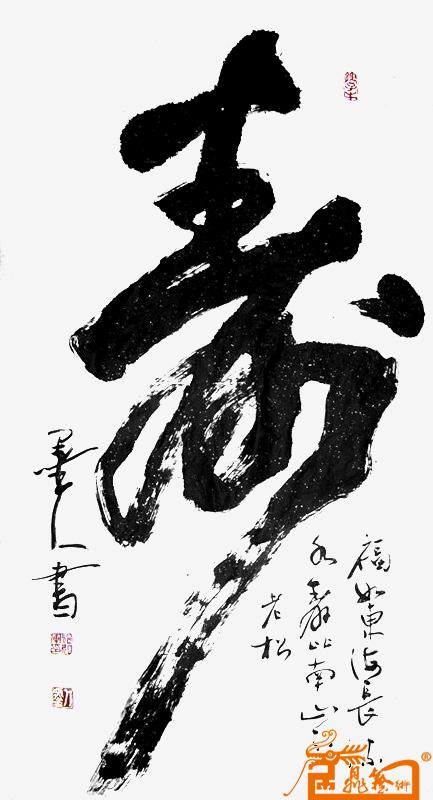 寿
福如東海長流
水寿比南山不
老松
墨人書